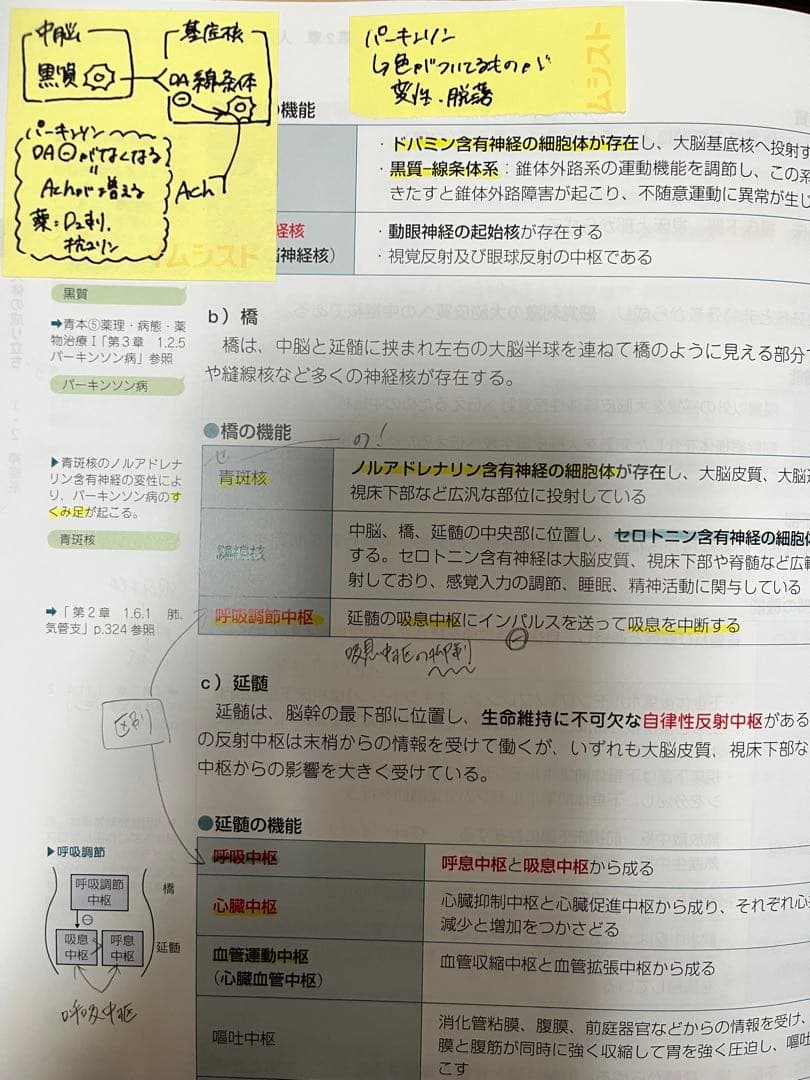 中脳
黒質
基底核
DA 線条体
⊖
パーキンソン
DA⊖がなくなる
Achが増える
Ach
薬:D₂刺、
抗コリン
パーキンソン
↳色がついてるものが
変性・脱落
ムシスト
ムシスト
の機能
・ドパミン含有神経の細胞体が存在し、大脳基底核へ投射す
・黒質−線条体系:錐体外路系の運動機能を調節し、この系
きたすと錐体外路障害が起こり、不随意運動に異常が生じ
経核
神経核)
・動眼神経の起始核が存在する
・視覚反射及び眼球反射の中枢である
黒質
➡青本⑤薬理・病態・薬
物治療Ⅰ「第3章 1.2.5
パーキンソン病」参照
パーキンソン病
b)橋
橋は、中脳と延髄に挟まれ左右の大脳半球を連ねて橋のように見える部分
や縫線核など多くの神経核が存在する。
●橋の機能
の!
せ
青斑核
ノルアドレナリン含有神経の細胞体が存在し、大脳皮質、大脳
視床下部など広汎な部位に投射している
▶青斑核のノルアドレナ
リン含有神経の変性によ
り、パーキンソン病のす
くみ足が起こる。
青斑核
縫線核
中脳、橋、延髄の中央部に位置し、セロトニン含有神経の細胞
する。セロトニン含有神経は大脳皮質、視床下部や脊髄など広範
射しており、感覚入力の調節、睡眠、精神活動に関与している
➡「第2章 1.6.1 肺、
気管支」p.324 参照
呼吸調節中枢
延髄の吸息中枢にインパルスを送って吸息を中断する
⊖
吸息中枢の抑制
区別
c)延髄
延髄は、脳幹の最下部に位置し、生命維持に不可欠な自律性反射中枢がある
の反射中枢は末梢からの情報を受けて働くが、いずれも大脳皮質、視床下部な
中枢からの影響を大きく受けている。
●延髄の機能
呼吸中枢
呼息中枢と吸息中枢から成る
心臓中枢
心臓抑制中枢と心臓促進中枢から成り、それぞれ心
減少と増加をつかさどる
血管運動中枢
(心臓血管中枢)
血管収縮中枢と血管拡張中枢から成る
嘔吐中枢
消化管粘膜、腹膜、前庭器官などからの情報を受け、
膜と腹筋が同時に強く収縮して胃を強く圧迫し、嘔吐
こす
▶呼吸調節
呼吸調節
中枢
橋
⊖
吸息
中枢
呼息
中枢
延髄
呼吸中枢